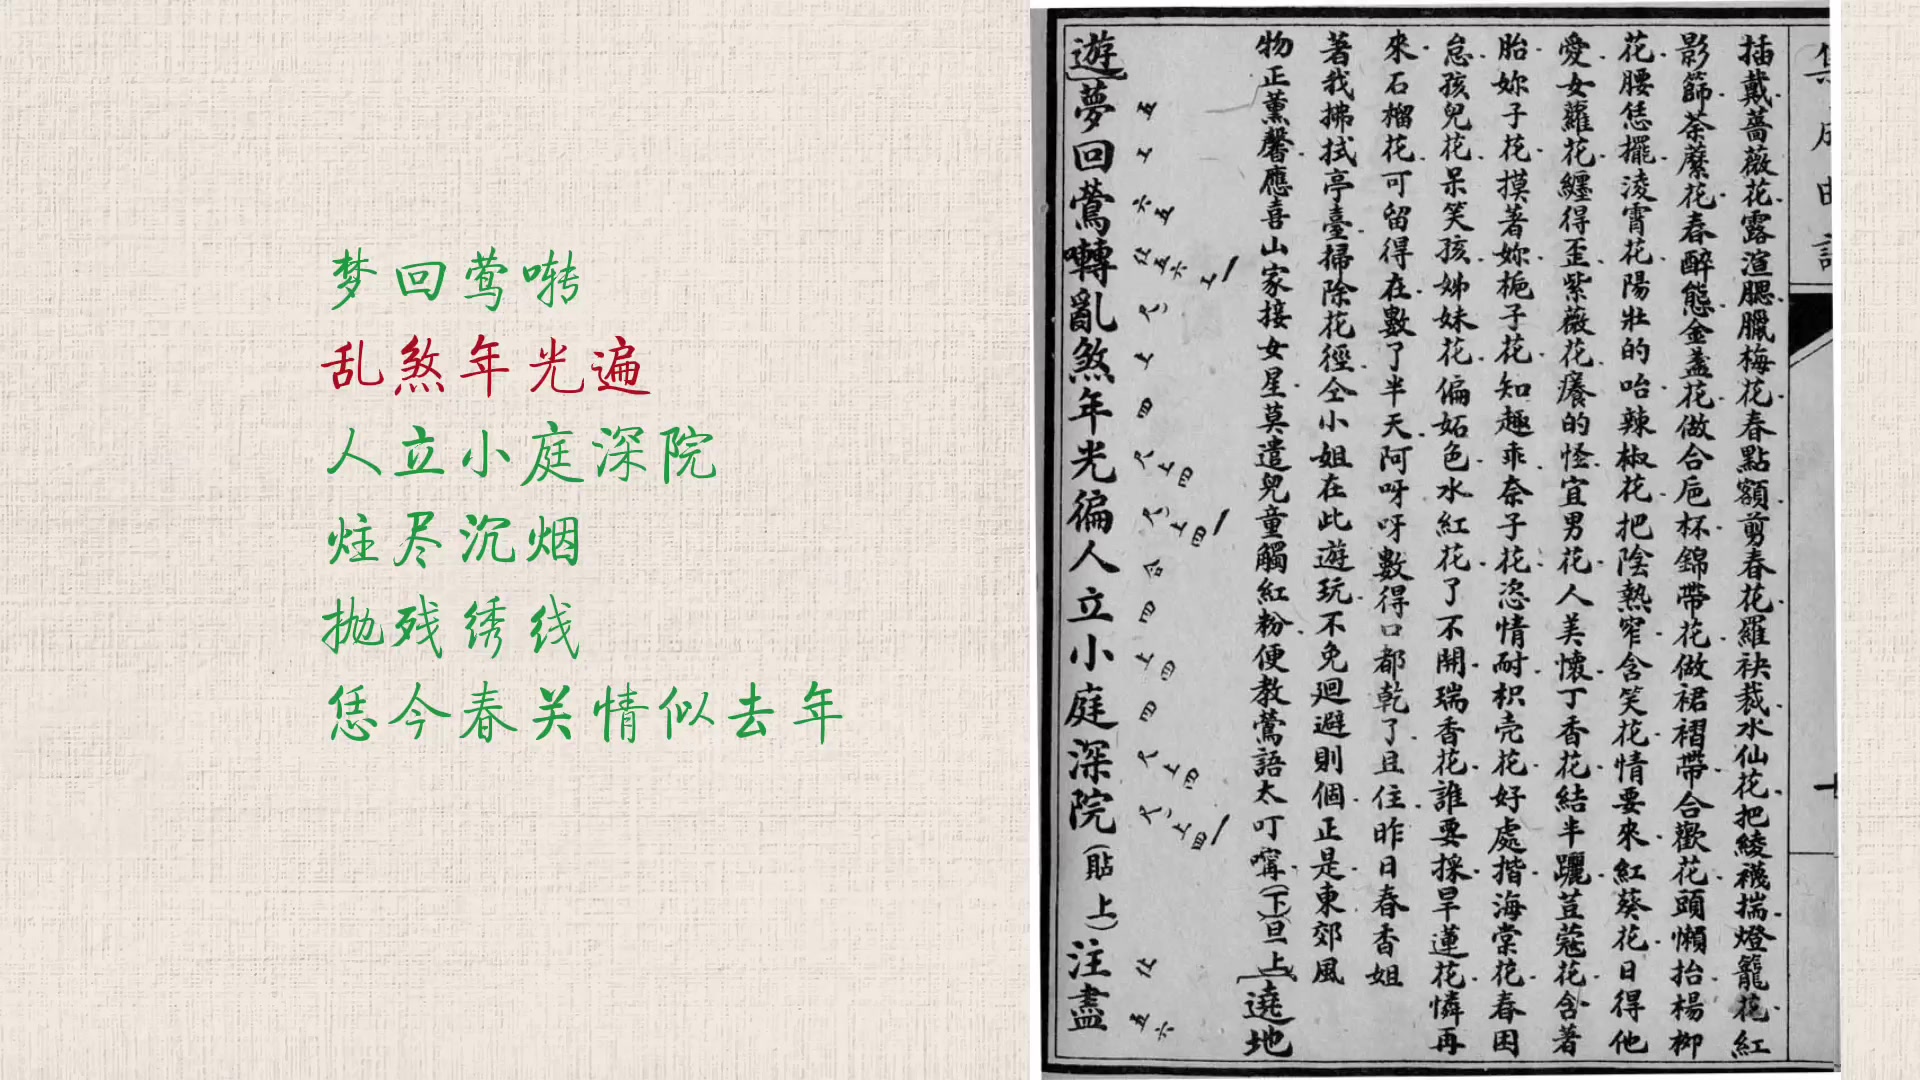 梦回莺啭
乱煞年光遍
人立小庭深院
炷尽沉烟
抛残绣线
恁今春关情似去年
插戴薔薇花露渲腮臘梅花春點額剪春花羅袂裁水仙花把綾襪揣燈籠花紅
影篩荼蘼花春醉態金盞花做合巵杯錦帶花做裙褶帶合歡花頭懶抬楊柳
花腰恁擺淩霄花陽壯的咍辣椒花把陰熱窄含笑花情要來紅葵花日得他
愛女蘿花纏得歪紫薇花癢的怪宜男花人美懷丁香花結半躧荳蔻花含著
胎妳子花摸著妳梔子花知趣乖奈子花恣情耐枳壳花好處揩海棠花春困
怠孩兒花呆笑孩姊妹花偏妬色水紅花了不開瑞香花誰要採旱蓮花憐再
來石榴花可留得在數了半天阿呀呀數得口都乾了且住昨日春香姐
著我拂拭亭臺掃除花徑仝小姐在此遊玩不免迴避則個正是東郊風
物正薰馨應喜山家接女星莫遣兒童觸紅粉便教鶯語太叮嚀(下)旦上遶地
遊夢回鶯囀亂煞年光徧人立小庭深院(貼上)注盡